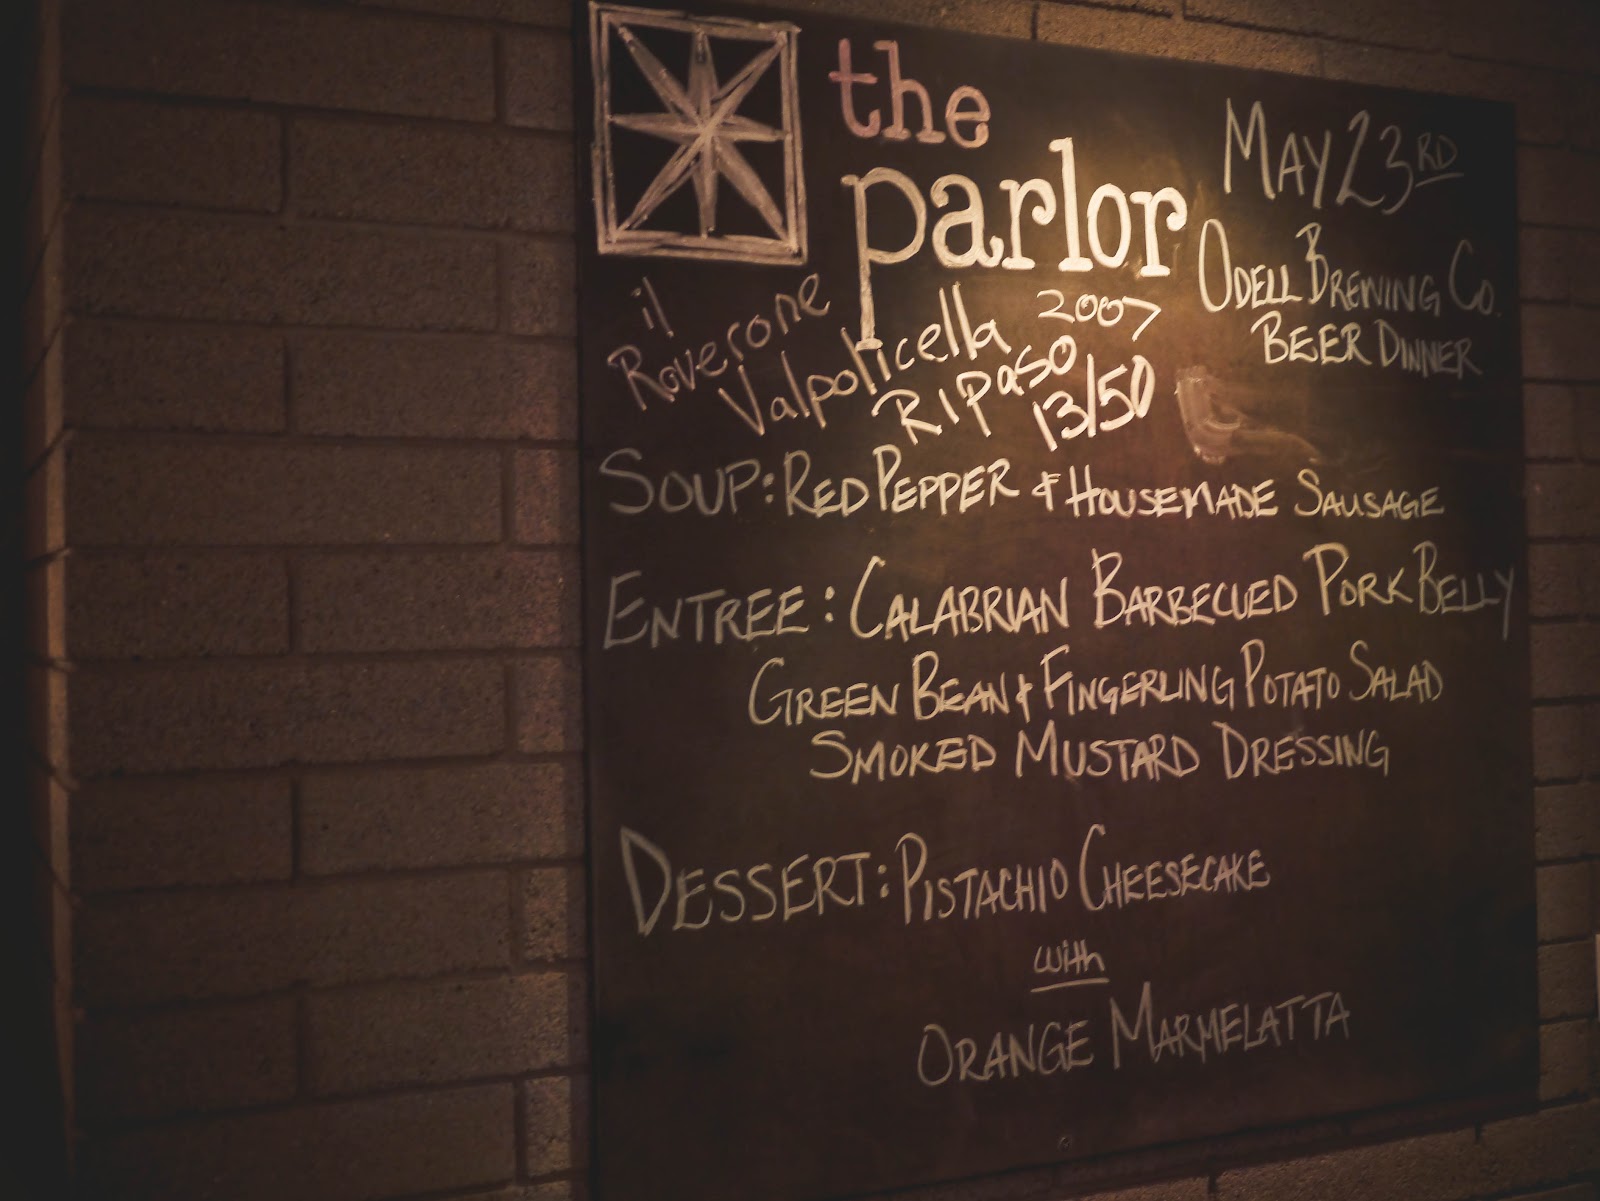 the
parlor
MAY 23RD
ODELL BREWING CO.
BEER DINNER
il
Roverone
Valpolicella 2007
RIPASO
13/50
SOUP: RED PEPPER & HOUSEMADE SAUSAGE
ENTREE: CALABRIAN BARBECUED PORK BELLY
GREEN BEAN & FINGERLING POTATO SALAD
SMOKED MUSTARD DRESSING
DESSERT: PISTACHIO CHEESECAKE
with
ORANGE MARMELATTA